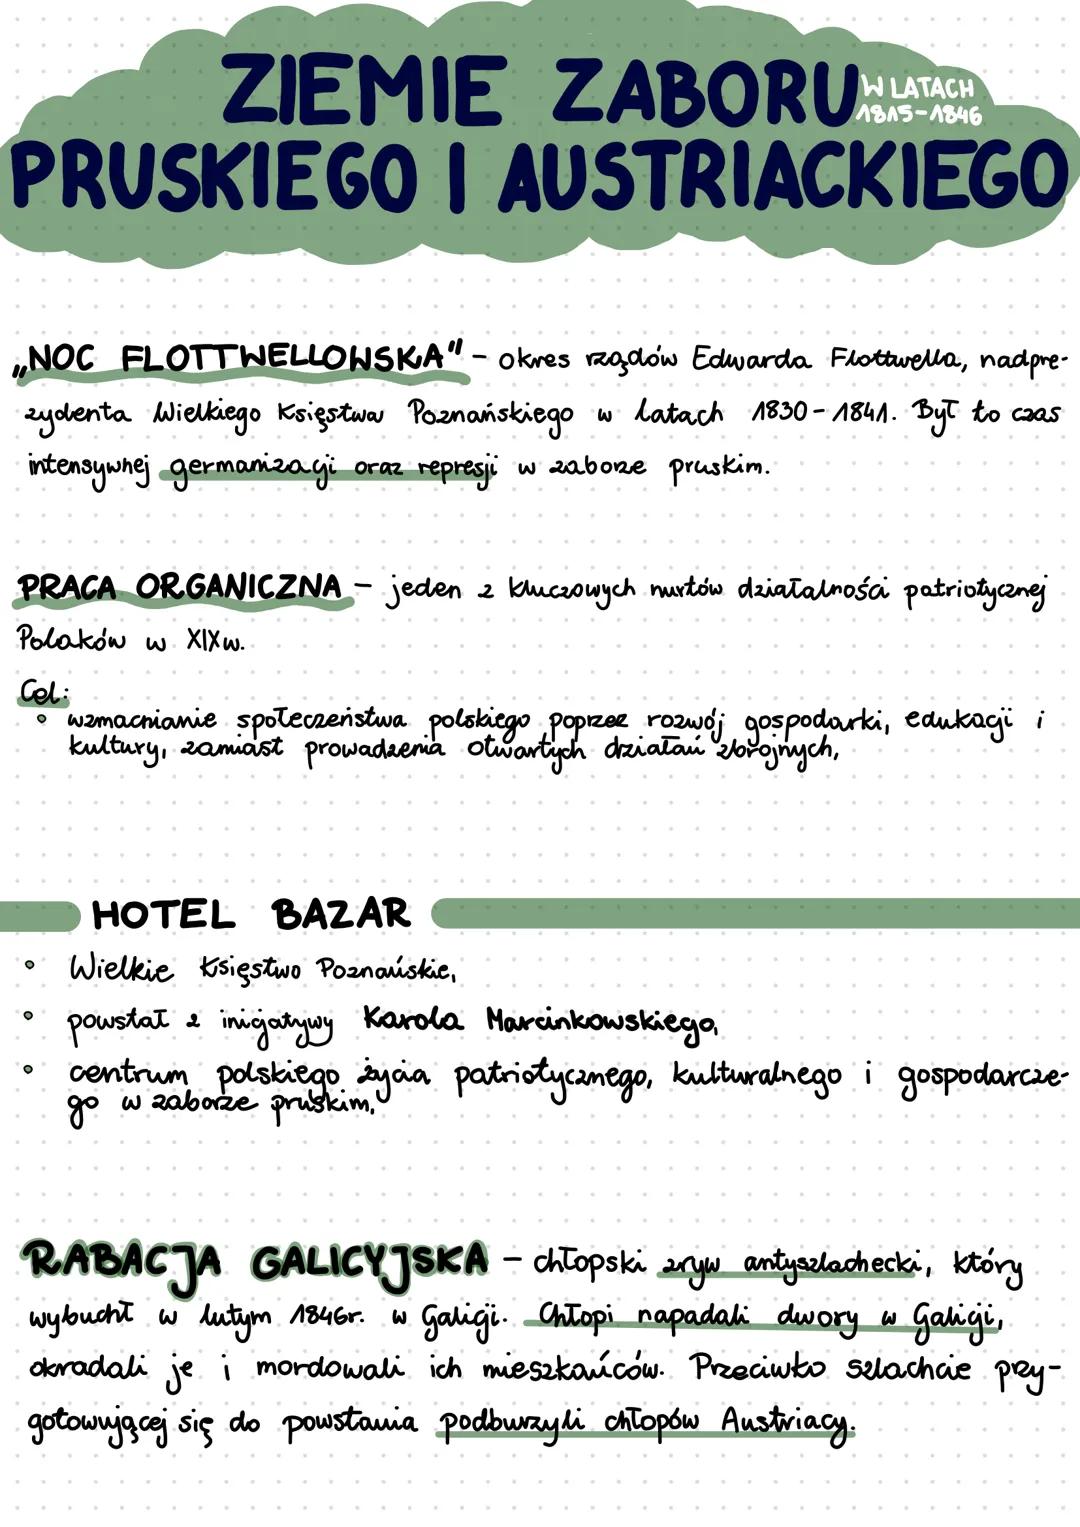 ZIEMIE ZABORU W LATACH
1815-1846
PRUSKIEGO I AUSTRIACKIEGO
„NOC FLOTTWELLOWSKA" - okres rządów Edwarda Flottwella, nadpre-
zydenta Wielkiego Księstwa Poznańskiego w latach 1830-1841. Był to czas
intensywnej germanizacji oraz represji w zaborze pruskim.
PRACA ORGANICZNA - jeden z kluczowych nurtów działalności patriotycznej
Polaków w XIXw.
Cel:
• wzmacnianie społeczeństwa polskiego poprzez rozwój gospodarki, edukacji i
kultury, zamiast prowadzenia otwartych działań zbrojnych,
HOTEL BAZAR
• Wielkie Księstwo Poznańskie,
• powstał z inicjatywy Karola Marcinkowskiego,
• centrum polskiego życia patriotycznego, kulturalnego i gospodarcze-
go w zaborze pruskim,
RABACJA GALICYJSKA - chłopski zryw antyszlachecki, który
wybuchł w lutym 1846r. w Galicji. Chłopi napadali dwory w Galicji,
okradali je i mordowali ich mieszkańców. Przeciwko szlachcie przy-
gotowującej się do powstania podburzyli chłopów Austriacy.